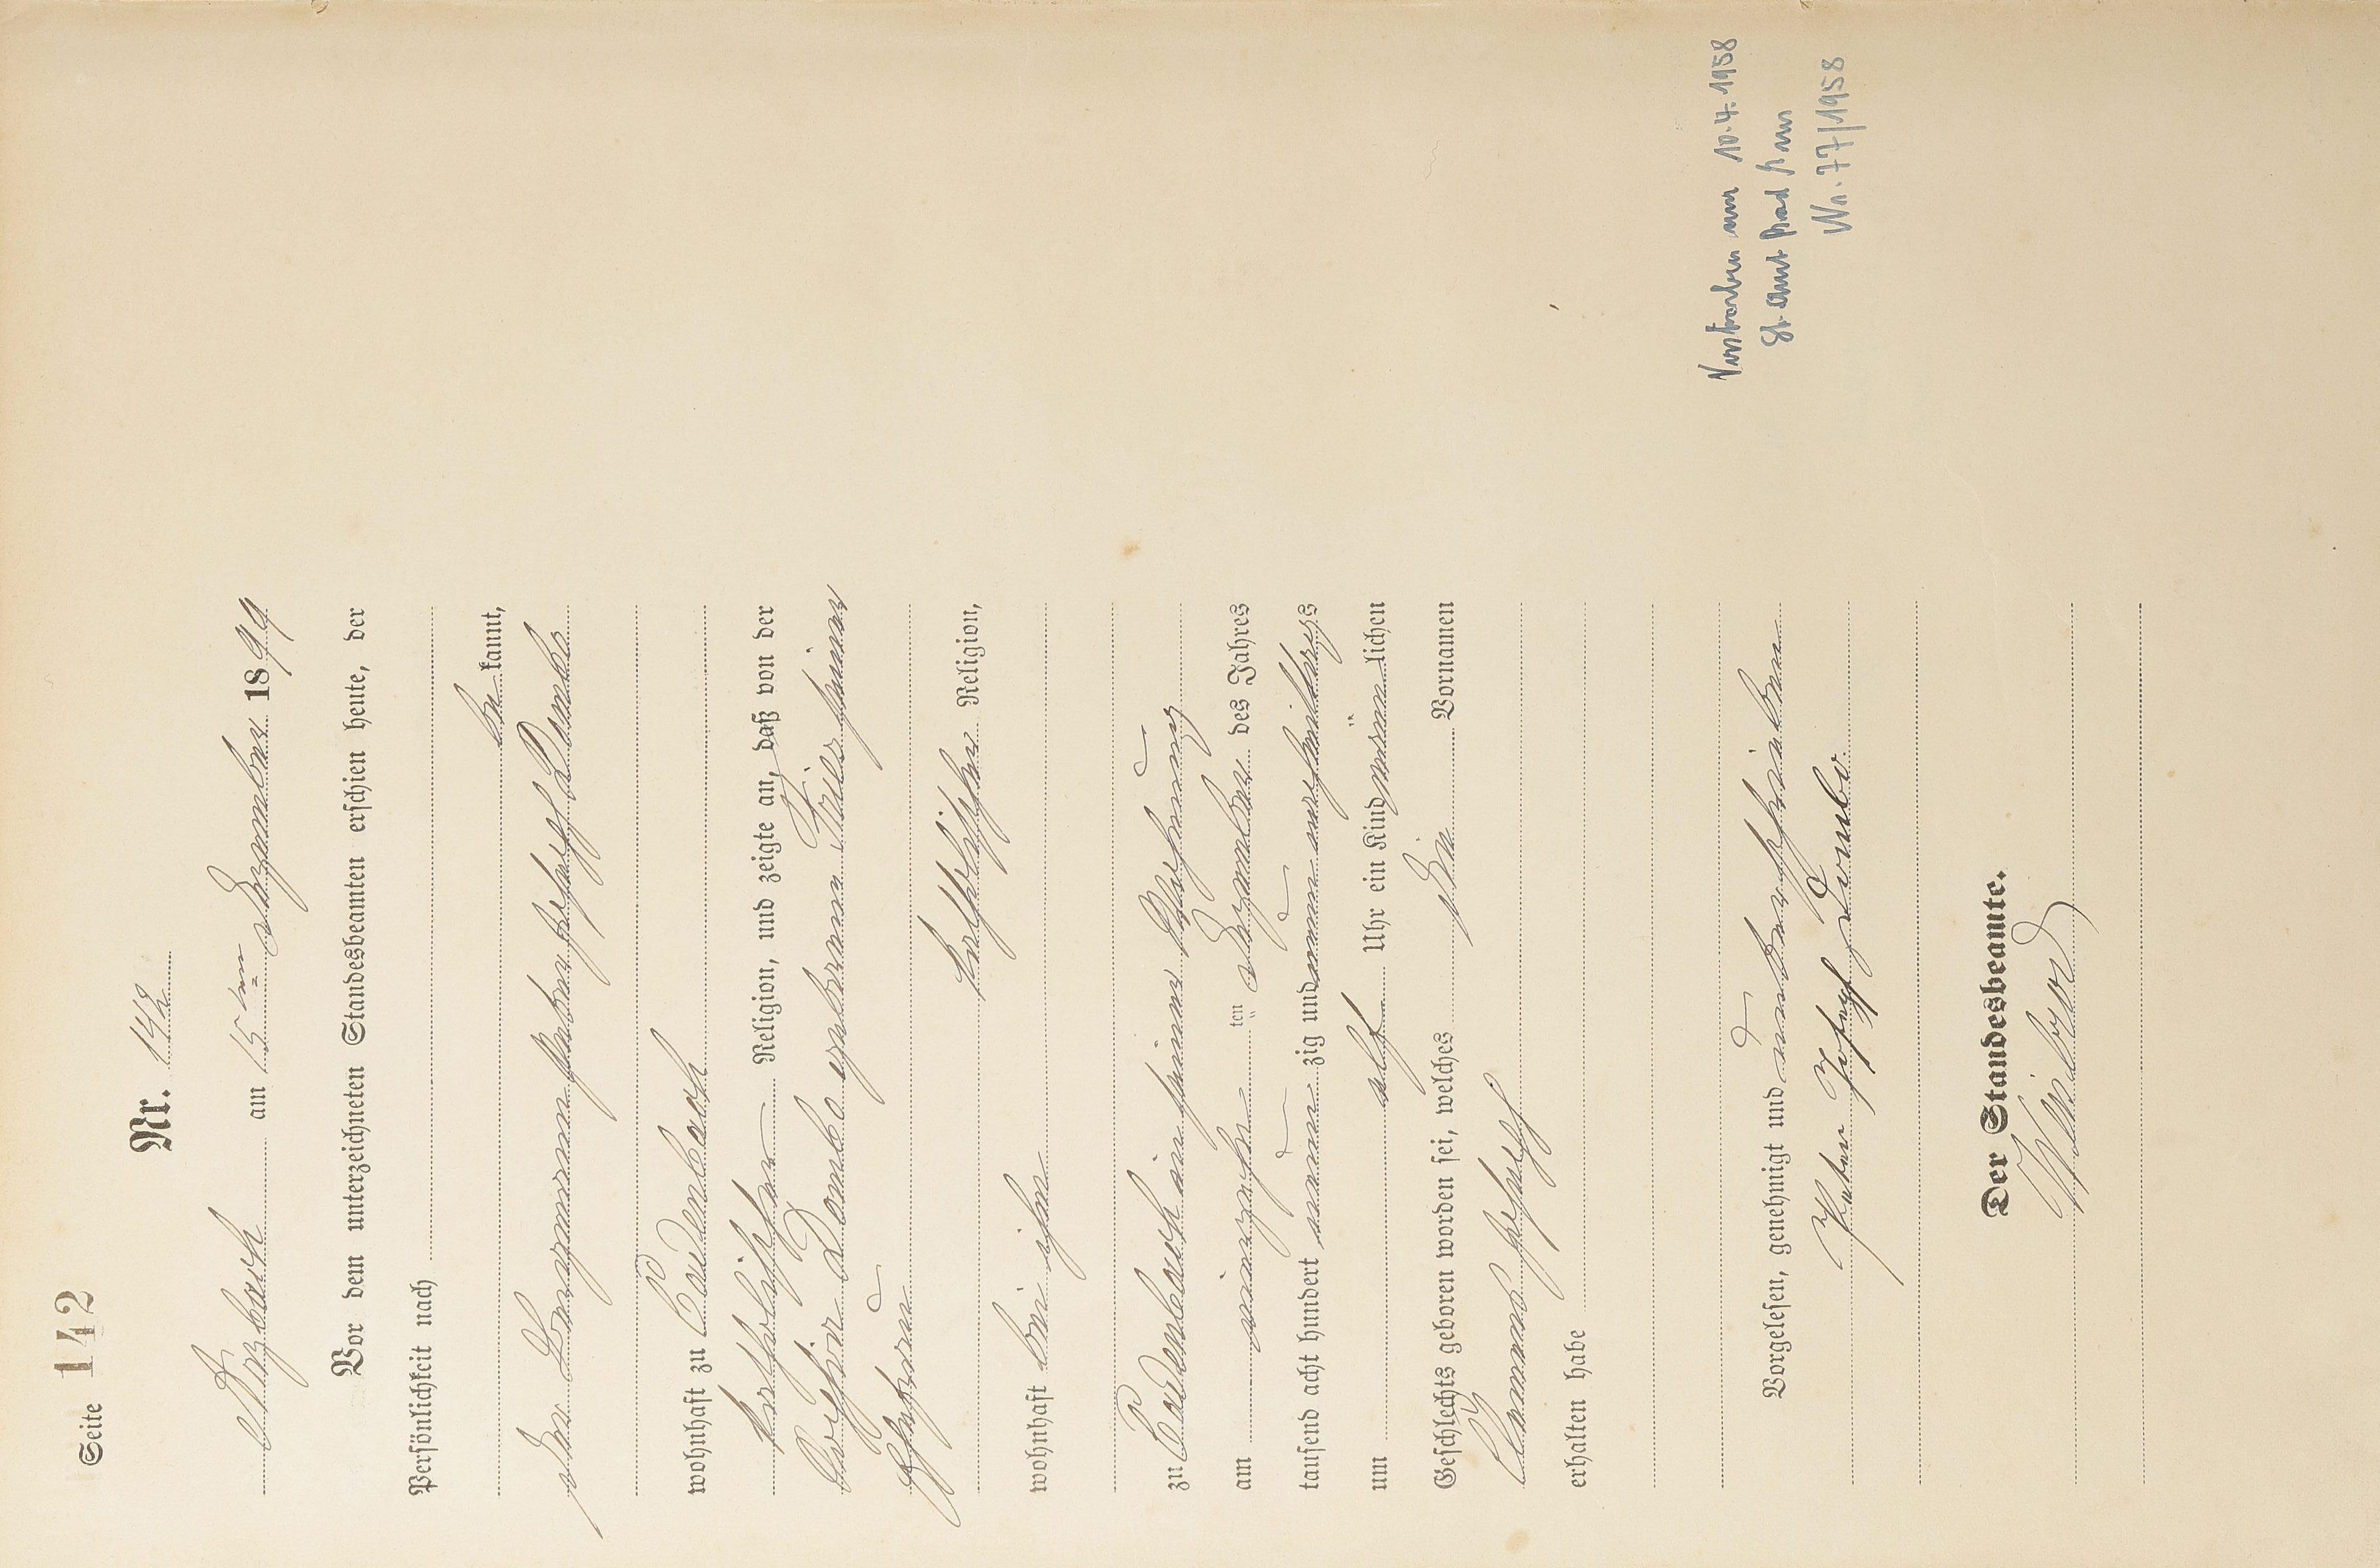 Seite 142
Nr. 142
am 15ten Dezember 1899
Vor dem unterzeichneten Standesbeamten erschien heute, der
Persönlichkeit nach
be kannt,
der Bergmann Peter Joseph Dombo
wohnhaft zu Cadenbach
katholischer Religion, und zeigte an, daß von der
Dombo geborenen seiner
Ehefrau
katholischer Religion,
wohnhaft bei ihm
zu Cadenbach in seiner Wohnung
am vierzehn ten Dezember des Jahres
tausend acht hundert neun zig und neun
um elf Uhr ein Kind männ lichen
Geschlechts geboren worden sei, welches die Vornamen
Clemens Joseph
erhalten habe
Vorgelesen, genehmigt und unterschrieben
Peter Josef Dombo
Der Standesbeamte.
Verstorben am 10.4.1958
St. Amt Bad Ems
Nr. 77/1958